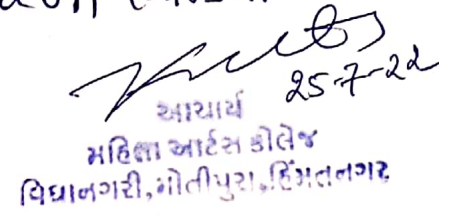 25-7-22
આચાર્ય
મહિલા આર્ટસ કોલેજ
વિદ્યાનગરી, મોતીપુરા, હિંમતનગર